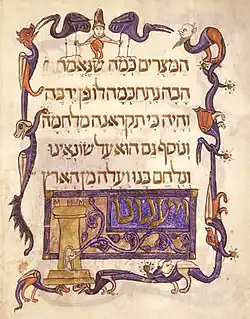 המצרים כמה שנאמר
הבה נתחכמה לו פן ירבה
והיה כי תקראנה מלחמה
ונוסף גם הוא על שונאינו
ונלחם בנו ועלה מן הארץ
ויענונו